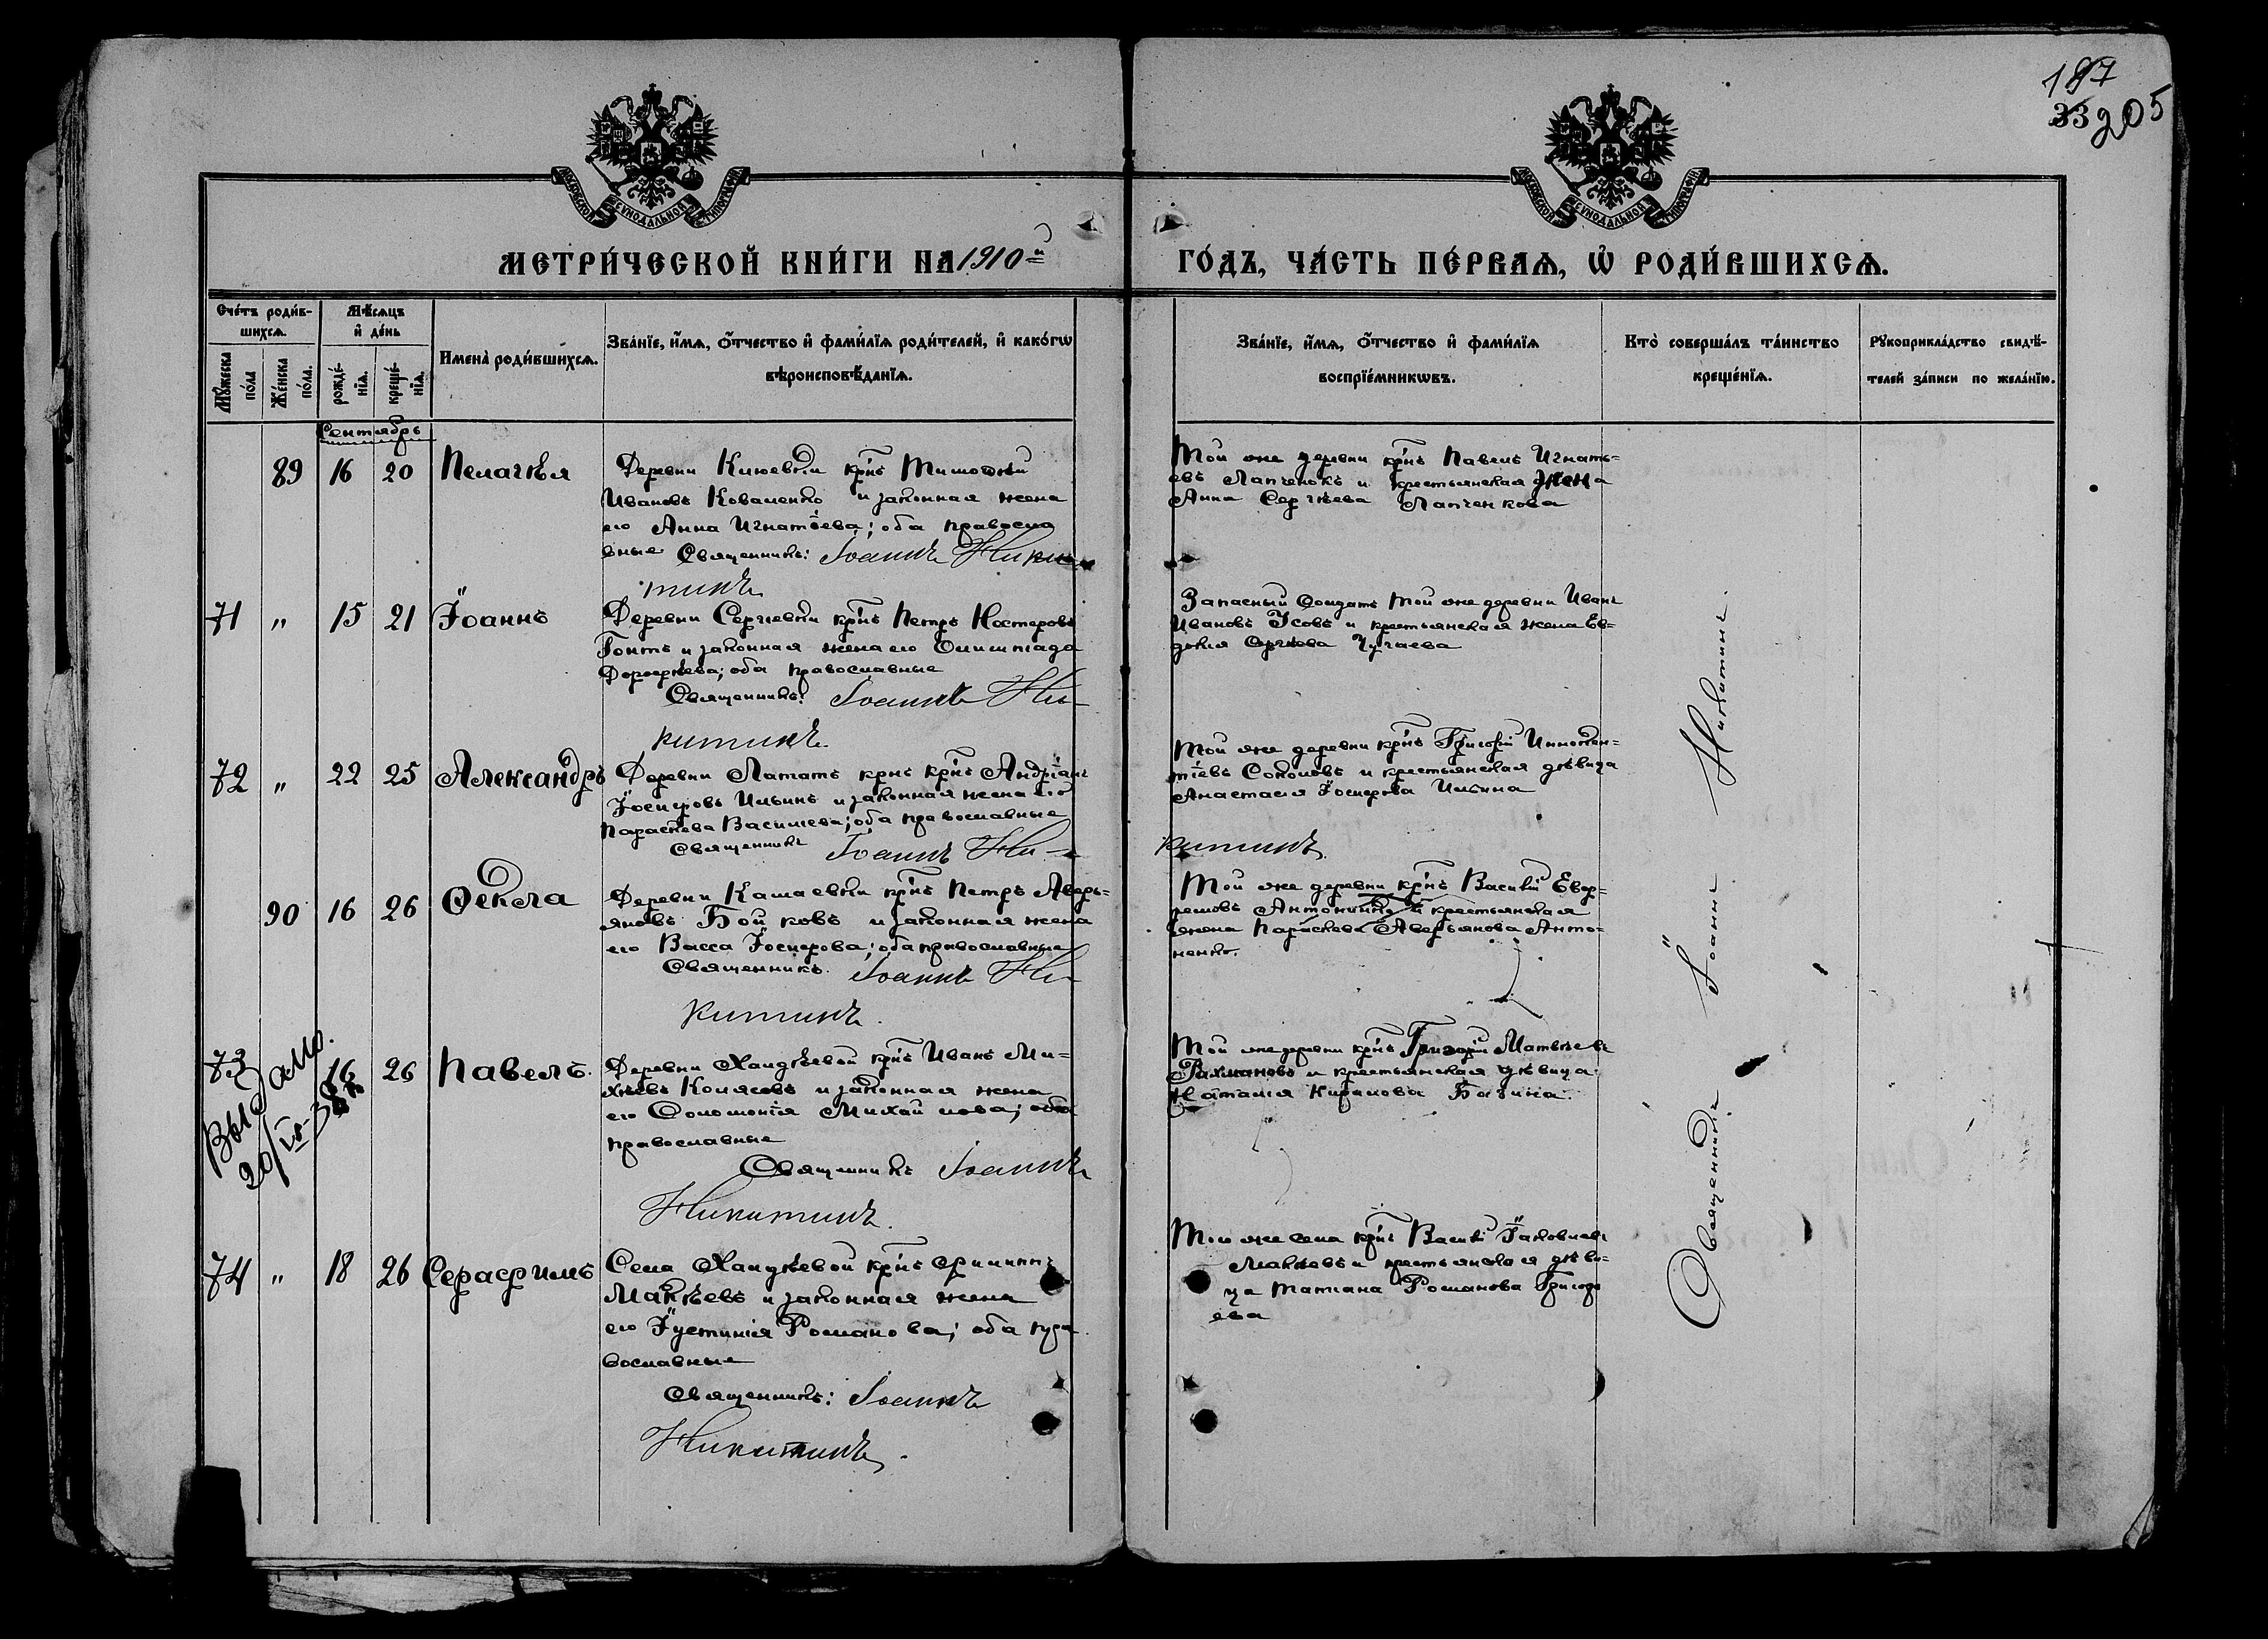 187
33 205
МОСКОВСКОЙ СѴНОДАЛЬНОЙ ТИПОГРАФІИ
МОСКОВСКОЙ СѴНОДАЛЬНОЙ ТИПОГРАФІИ
МЕТРИ́ЧЕСКОЙ КНИ́ГИ НА 1910 й
ГО́ДЪ, ЧА́СТЬ ПЕ́РВАѦ, Ѡ҆ РОДИ́ВШИХСѦ.
Сче́тъ роди́в-
шихсѧ.
Мѣ́сѧцъ
и҆ де́нь
Мꙋ́жеска
по́ла
Же́нска
по́ла.
рожде́-
нїѧ.
креще́-
нїѧ.
Имена̀ роди́вшихсѧ.
Зва́нїе, и҆́мѧ, ѻ҆́тчество и҆ фами́лїѧ роди́телей, и҆ како́гѡ
вѣроисповѣ́данїѧ.
Зва́нїе, и҆́мѧ, ѻ҆́тчество и҆ фами́лїѧ
воспрїе́мникѡвъ.
Кто̀ соверша́лъ та́инство
креще́нїѧ.
Рꙋкоприкла́дство свидѣ́-
телей за́писи по жела́нїю.
Сентябрь
89 16 20 Пелагія
Деревни Кіевки крнъ Тимофей
Ивановъ Коваленко и законная жена
его Анна Игнатіева; оба правосла
вные Священникъ: Іоаннъ Ники
тинъ
Той же деревни крнъ Павелъ Игнать=
евъ Лапченокъ и крестьянская жена
Анна Сергѣева Лапченкова
71 " 15 21 Іоаннъ
Деревни Сергіевки крнъ Петръ Нестеровъ
Гонтъ и законная жена его Олимпіада
Дорофѣева; оба православные
Священникъ: Іоаннъ Ни-
китинъ.
Запасный Солдатъ той же деревни Иванъ
Ивановъ Усовъ и крестьянская жена Ев-
докія Сергѣева Чугаева
72 " 22 25 Александръ
Деревни Лататъ крнъ крнъ Андріанъ
Іосифовъ Ильинъ и законная жена его
Параскева Васильева; оба православные
Священникъ Іоаннъ Ни-
китинъ.
Той же деревни крнъ Григорій Иннокен=
тіевъ Соколовъ и крестьянская дѣвица
Анастасія Іосифова Ильина
90 16 26 Ѳекла
Деревни Камаевки крнъ Петръ Аверь=
яновъ Бойковъ и законная жена
его Васса Іосифова; оба православные
Священникъ. Іоаннъ Ни-
китинъ.
Той же деревни крнъ Василій
Антоненко и крестьянская
жена Параскева Аверьянова Анто=
ненко.
73 16 26 Павелъ.
Выдано.
20/IV-38
Деревни Хандѣевой крнъ Иванъ Ми=
хѣевъ Колясовъ и законная жена
его Соломонія Михайлова; оба
православные
Священникъ Іоаннъ
Никитинъ.
Той же деревни крнъ Григорій Матвѣевъ
Рахмановъ и крестьянская дѣвица
Наталія Кирилова Багина.
74 " 18 26 Серафимъ
Села Хандѣевой крнъ Филиппъ
Макѣевъ и законная жена
его Іустинія Романова; оба пра
вославные
Священникъ: Іоаннъ
Никитинъ.
Той же села крнъ Василій Іаковлевъ
Макѣевъ и крестьянская дѣви-
ца Татіана Романова Григорь
ева
Священникъ Іоаннъ Никитинъ.